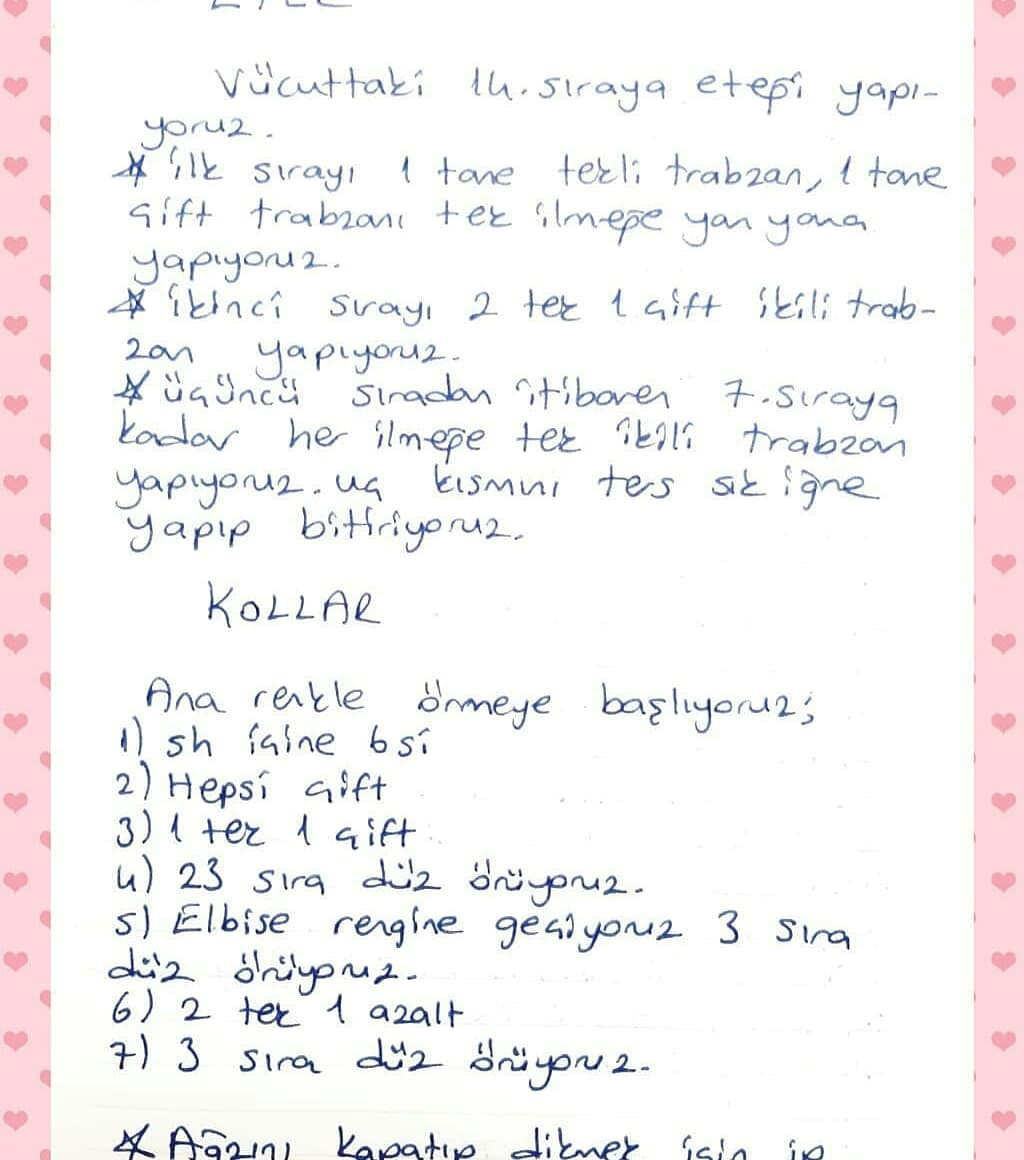 Vücuttaki 14. sıraya eteği yapı-
yoruz.
* ilk sırayı 1 tane tekli trabzan, 1 tane
çift trabzanı tek ilmeğe yan yana
yapıyoruz.
* ikinci sırayı 2 tek 1 çift ikili trab-
zan yapıyoruz.
* üçüncü sıradan itibaren 7. sıraya
kadar her ilmeğe tek ikili trabzan
yapıyoruz. uç kısmını ters sık iğne
yapıp bitiriyoruz.
KOLLAR
Ana renkle örmeye başlıyoruz;
1) sh içine 6 si
2) Hepsi çift
3) 1 tek 1 çift
4) 23 sıra düz örüyoruz.
5) Elbise rengine geçiyoruz 3 sıra
düz örüyoruz.
6) 2 tek 1 azalt
7) 3 sıra düz örüyoruz.
* Ağzını kapatıp dikmek için ip